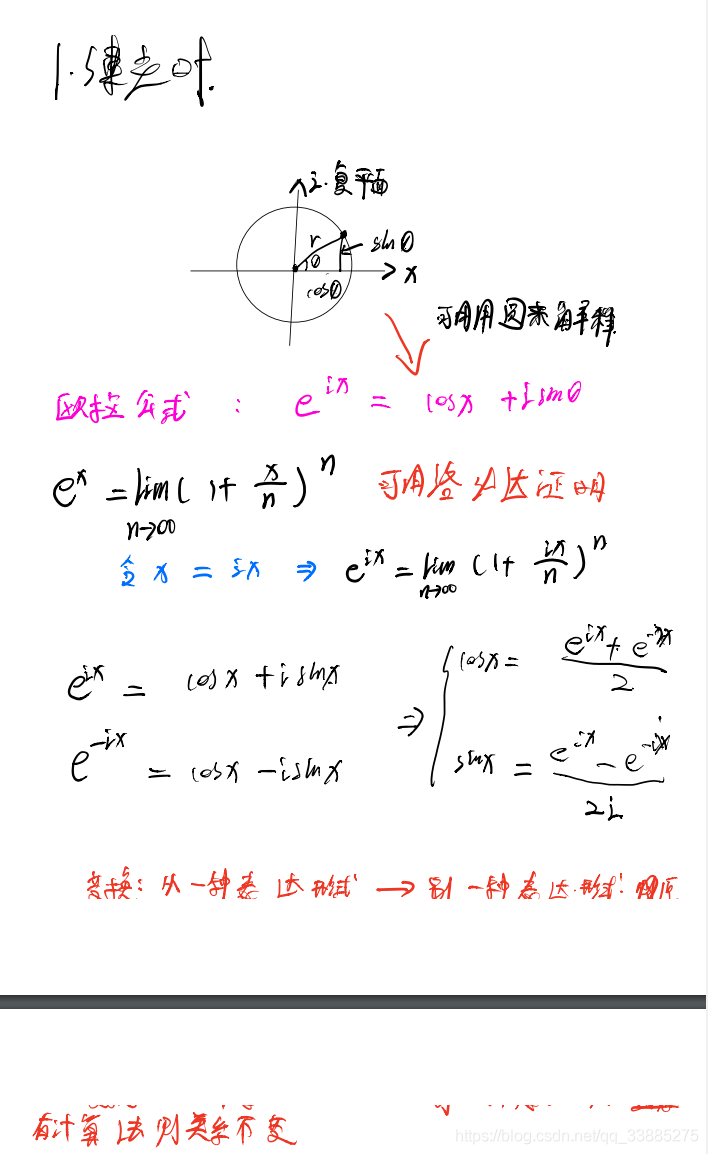 i.复平面
r
sinθ
θ
x
cosθ
可用用圆来解释
欧拉公式 : e^{ix} = cosx + isinθ
e^x = lim_{n→∞} (1+ x/n)^n 可用洛必达证明
令 x = ix ⇒ e^{ix} = lim_{n→∞} (1+ ix/n)^n
e^{ix} = cosx + isinx
e^{-ix} = cosx - isinx
⇒ { cosx = (e^{ix} + e^{-ix})/2
sinx = (e^{ix} - e^{-ix})/2i
变换: 从一种表达形式 → 到一种表达形式!
有计算法则关系不变
https://blog.csdn.net/qq_33885275